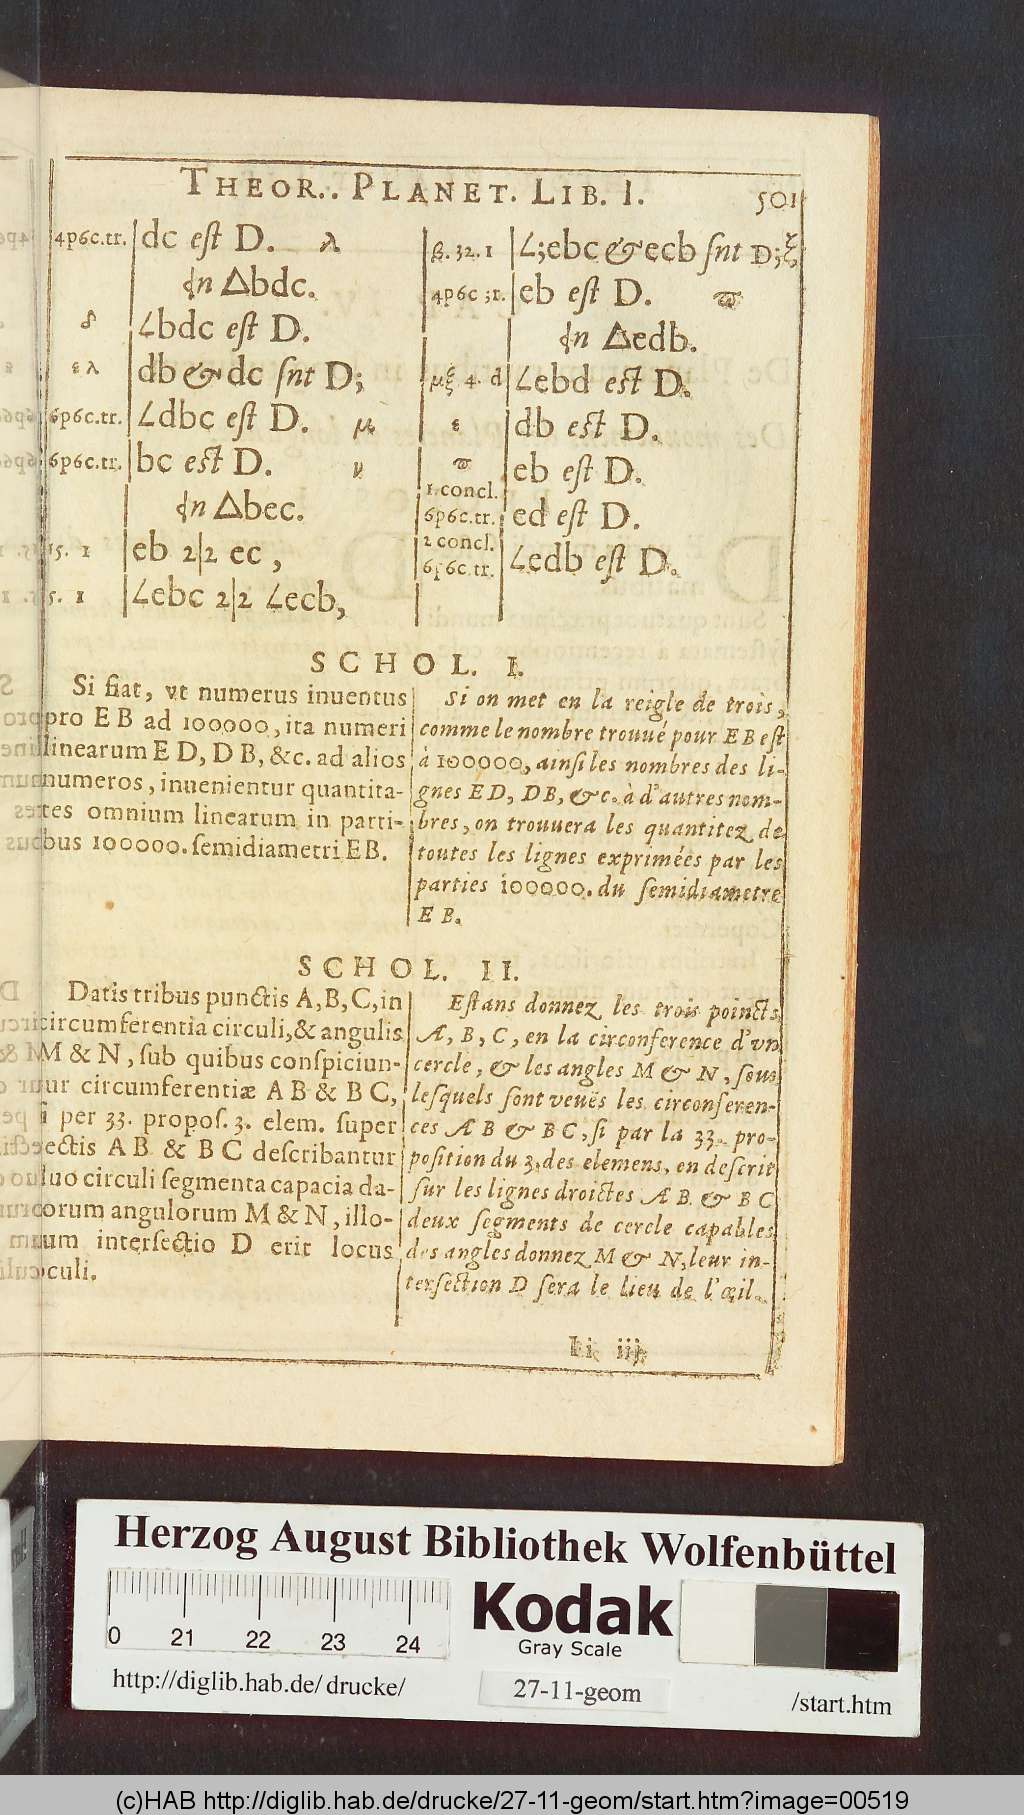 THEOR. PLANET. LIB. I. 501
4p6c.tr. dc eſt D. λ
In Δbdc.
δ ∠bdc eſt D.
ελ db & dc ſnt D;
6p6c.tr. ∠dbc eſt D. μ
6p6c.tr. bc eſt D. ν
In Δbec.
15. 1 eb 2|2 ec ,
5. 1 ∠ebc 2|2 ∠ecb,
β. 32. 1 ∠;ebc & ecb ſnt D; ξ
4p6c tr. eb eſt D. ϖ
In Δedb.
μξ 4. d ∠ebd eſt D.
ε db eſt D.
ϖ eb eſt D.
1. concl.
6p6c.tr. ed eſt D.
2 concl.
6p6c.tr. ∠edb eſt D.
SCHOL. I.
Si fiat, vt numerus inuentus
pro E B ad 100000, ita numeri
linearum E D, D B, &c. ad alios
numeros, inuenientur quantita-
tes omnium linearum in parti-
bus 100000. ſemidiametri EB.
Si on met en la reigle de trois,
comme le nombre trouué pour E B eſt
à 100000, ainſi les nombres des li-
gnes E D, D B, &c. à d'autres nom-
bres, on trouuera les quantitez de
toutes les lignes exprimées par les
parties 100000. du ſemidiametre
E B.
SCHOL. II.
Datis tribus punctis A, B, C, in
circumferentia circuli, & angulis
M & N, ſub quibus conſpiciun-
tur circumferentiæ A B & B C,
ſi per 33. propoſ. 3. elem. ſuper
rectis A B & B C deſcribantur
duo circuli ſegmenta capacia da-
torum angulorum M & N, illo-
rum interſectio D erit locus
oculi.
Eſtans donnez les trois poincts
A, B, C, en la circonference d'vn
cercle, & les angles M & N, ſous
leſquels ſont veuës les circonferen-
ces A B & B C, ſi par la 33. pro-
poſition du 3. des elemens, en deſcrit
ſur les lignes droictes A B & B C
deux ſegments de cercle capables
des angles donnez M & N, leur in-
terſection D ſera le lieu de l'œil.
Ii iij
Herzog August Bibliothek Wolfenbüttel
0 21 22 23 24
Kodak
Gray Scale
http://diglib.hab.de/ drucke/
27-11-geom
/start.htm
(c)HAB http://diglib.hab.de/drucke/27-11-geom/start.htm?image=00519